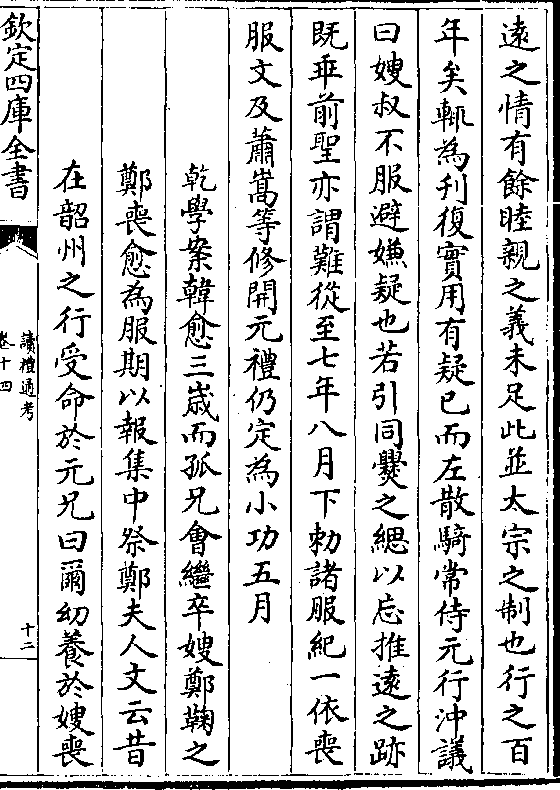 遠之情有餘睦親之義未足此並太宗之制也行之百
年矣輙為刋復實用有疑已而左散騎常侍元行沖議
曰嫂叔不服避嫌疑也若引同爨之緦以忘推遠之跡
既乖前聖亦謂難從至七年八月下勅諸服紀一依喪
服文及蕭嵩等修開元禮仍定為小功五月
乾學案韓愈三嵗而孤兄會繼卒嫂鄭鞠之
鄭喪愈為服期以報集中祭鄭夫人文云昔
在韶州之行受命於元兄曰爾幼養於嫂喪
欽定四庫全書
讀禮通考
卷十四
十二